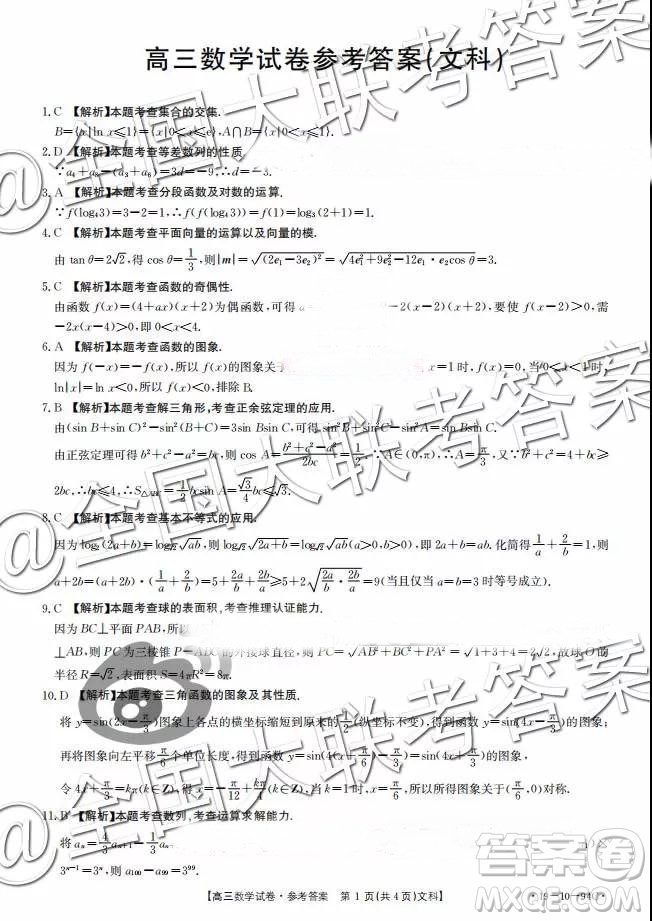 高三数学试卷参考答案(文科)
1. C 【解析】本题考查集合的交集.
B={x|ln x≤1}={x|0<x≤e},A∩B={x|0<x≤
2. D 【解析】本题考查等差数列的性质.
3. A 【解析】本题考查分段函数及对数的运算.
∵f(log₄3)=3-2=1,∴f(f(log₄3))=f(1)=log₃(2+1)=1.
4. C 【解析】本题考查平面向量的运算以及向量的模.
由 tan θ=2√2,得 cos θ=1/3,则|m|=√((2e₁-3e₂)²)=√(4e₁²+9e₂²-12e₁·e₂cos θ)=3.
5. C 【解析】本题考查函数的奇偶性.
由函数 f(x)=(4+ax)(x+2)为偶函数,可得 a -2(x-2)(x+2),要使 f(2-x)>0,需
-2x(x-4)>0,即 0<x<4.
6. A 【解析】本题考查函数的图象.
因为 f(-x)=-f(x),所以 f(x)的图象关于 x=1时,f(x)=0,当 0<x<1时,
ln|x|=ln x<0,所以 f(x)<0,排除 B.
7. B 【解析】本题考查解三角形,考查正余弦定理的应用.
由(sin B+sin C)²-sin²A=3sin Bsin C,可得 sin²B+sin²C-sin²A=sin Bsin C.
由正弦定理可得 b²+c²-a²=bc,则 cos A=(b²+c²-a²)/2bc=1/2,∵A∈(0,π),∴A=π/3,又∵b²+c²=4+bc≥
2bc,∴bc≤4,∴S△ABC=1/2 bcsin A=√3/4 bc≤√3.
8. C 【解析】本题考查基本不等式的应用.
因为 log₂(2a+b)=log√2 √ab,则 log√2 √(2a+b)=log√2 √ab(a>0,b>0),即 2a+b=ab. 化简得 1/a+2/b=1,则
a+2b=(a+2b)·(1/a+2/b)=5+2a/b+2b/a≥5+2√(2a/b·2b/a)=9(当且仅当 a=b=3 时等号成立).
9. C 【解析】本题考查球的表面积,考查推理认证能力.
因为 BC⊥平面 PAB,所以
⊥AB,则 PC 为三棱锥 P-ABC 的外接球直径,所以 PC=√(AB²+BC²+PA²)=√(1+3+4)=2√2,故球 O 的
半径 R=√2,表面积 S=4πR²=8π.
10. D 【解析】本题考查三角函数的图象及其性质.
将 y=sin(2x-π/3)图象上各点的横坐标缩短到原来的 1/2(纵坐标不变),得到函数 y=sin(4x-π/3)的图象;
再将图象向左平移 π/6 个单位长度,得到函数 y=sin[4(x+π/6)-π/3]=sin(4x+π/3)的图象,
令 4x+π/3=kπ(k∈Z),得 x=-π/12+kπ/4(k∈Z). 当 k=1 时,x=π/6,所以所得图象关于(π/6,0)对称.
11. B 【解析】本题考查数列,考查运算求解能力.
将 aₙ=4/3 aₙ₋₁-1/3
3ⁿ⁻¹=3ⁿ,则 a₁₀₀-a₉₉=3⁹⁹.
【高三数学试卷·参考答案 第 1 页(共 4 页)文科】
·19-10-94C·
@全国大联考答案
@全国大联考答案
@全国大联考答案
答案圈
MXQE.COM